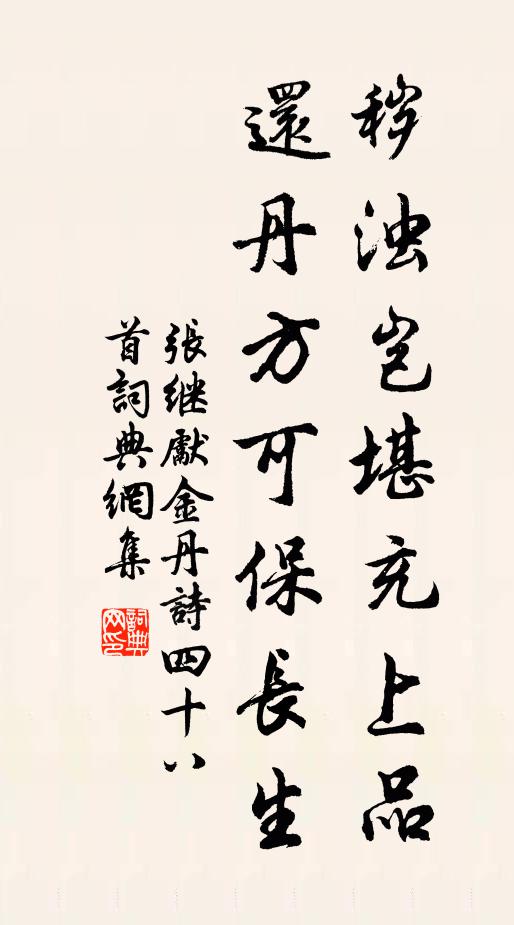 穢浊岂堪充上品
還丹方可保長生
張继獻金丹詩四十八
首詞典網集
詞典網印